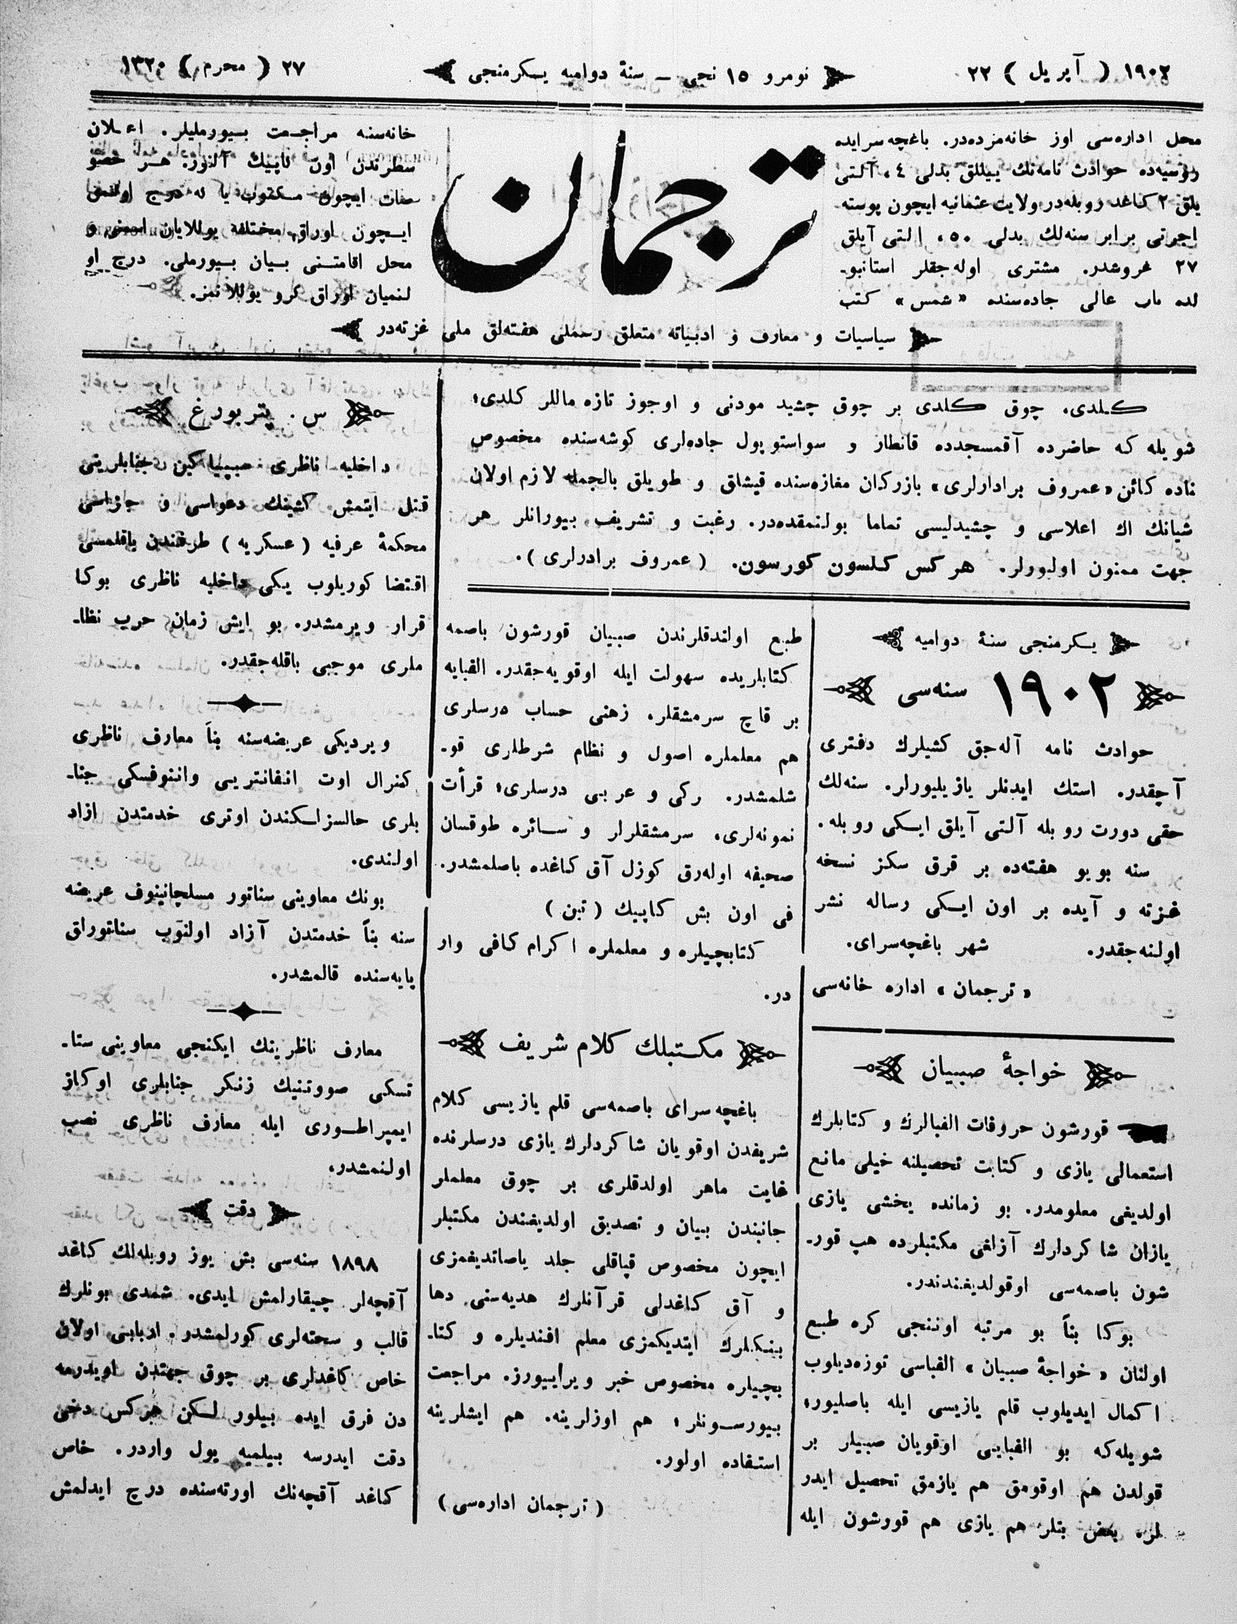 ١٩٠٢ ( آپریل ) ٢٢
نومرو ١٥ نجی — سنهٔ دوامیه یکرمنجی
٢٧ ( محرم ) ١٣٢٠
محل اداره‌سی اوز خانه‌مزده‌در. باغچه سرایده
روسیه‌ده حوادث نامه‌نك ییللق بدلی ٤، آلتی
یلق ٢ كاغد روبله‌در ولایت عثمانیه ایچون پوسته
اجرتی برابر سنه‌لك بدلی ٥٠، التی آیلق
٢٧ غروشدر. مشتری اوله‌جقلر استانبو-
لده باب عالی جاده‌سنده «شمس» كتب
ترجمان
خانه‌سنه مراجعت بیورملیلر. اعلان
سطرندن اون كاپیك آلنور. هر خصو
صات ایچون مكتوب یا له درج اولنمق
ایچون اوراق مختلفه یوللایان اسمی و
محل اقامتنی بیان بیورملی. درج او
لنمیان اوراق كرو یوللانمز.
سیاسیات و معارف و ادبیاته متعلق رسملی هفته‌لق ملی غزته‌در
كلدی. چوق كلدی بر چوق چشید مودنی و اوجوز تازه ماللر كلدی؛
شویله كه حاضرده آقمسجدده قانطار و سواستوپول جاده‌لری كوشه‌سنده مخصوص
ناده كائن «عمروف برادرلری» بازركان مغازه‌سنده قیشلق و طویلق بالجمله لازم اولان
شیانك اك اعلاسی و چشیدلیسی تماما بولنمقده‌در. رغبت و تشریف بیورانلر هر
جهت ممنون اولیورلر. هر كس كلسون كورسون. ( عمروف برادرلری ).
یكرمنجی سنهٔ دوامیه
١٩٠٢ سنه‌سی
حوادث نامه آله‌جق كشیلرك دفتری
آچقدر. استك ایدنلر یازیلیورلر. سنه‌لك
حقی دورت روبله آلتی آیلق ایكی روبله.
سنه بویو هفته‌ده بر قرق سكز نسخه
غزته و آیده بر اون ایكی رساله نشر
اولنه‌جقدر. شهر باغچه‌سرای.
«ترجمان» اداره خانه‌سی
خواجهٔ صبیان
قورشون حروفات الفبالرك و كتابلرك
استعمالی یازی و كتابت تحصیلنه خیلی مانع
اولدیغی معلومدر. بو زمانده یخشی یازی
یازان شاكردلرك آزلغی مكتبلرده هپ قور-
شون باصمه‌سی اوقولدیغندندر.
بوكا بناً بو مرتبه اوننجی كره طبع
اولنان «خواجهٔ صبیان» الفباسی توزه‌دیلوب
اكمال ایدیلوب قلم یازیسی ایله باصلیور؛
شویله‌كه بو الفبایی اوقویان صبیلر بر
قولدن هم اوقومق هم یازمق تحصیل ایدر
لر. بعض بتلر هم یازی هم قورشون ایله
طبع اولندقلرندن صبیان قورشون باصمه
كتابلریده سهولت ایله اوقویه‌جقدر. الفبایه
بر قاچ سرمشقلر. زهنی حساب درسلری
هم معلملره اصول و نظام شرطلری قو-
شلمشدر. ركی و عربی درسلری؛ قرأت
نمونه‌لری، سرمشقلرلر و سائره طوقسان
صحیفه اوله‌رق كوزل آق كاغده باصلمشدر.
فی اون بش كاپیك ( تین )
كتابچیلره و معلملره اكرام كافی وار
در.
مكتبلك كلام شریف
باغچه‌سرای باصمه‌سی قلم یازیسی كلام
شریفدن اوقویان شاكردلرك یازی درسلرنده
غایت ماهر اولدقلری بر چوق معلملر
جانبندن بیان و تصدیق اولدیغندن مكتبلر
ایچون مخصوص قپاقلی جلد یاصاتدیغمزی
و آق كاغدلی قرآنلرك هدیه‌سنی دها
ایتدیكمزی معلم افندیلره و كتا-
بچیلره مخصوص خبر ویراییورز. مراجعت
بیورسونلر؛ هم اوزلرینه. هم ایشلرینه
استفاده اولور.
( ترجمان اداره‌سی )
س. پتربورغ
داخلیه ناظری سیپیاكین جنابلرینی
قتل ایتمش كشینك دعواسی و جزاسی
محكمهٔ عرفیه ( عسكریه ) طرفندن باقلمسی
اقتضا كوریلوب یكی داخلیه ناظری بوكا
قرار ویرمشدر. بو ایش زمان حرب نظا-
ملری موجبی باقله‌جقدر.
ویردیكی عریضه‌سنه بناً معارف ناظری
كنرال اوت انفانتریی واننوفسكی جنا-
بلری حالسزلكندن اوتری خدمتدن ازاد
اولندی.
بونك معاوینی سناتور مسلچانینوف عریضه
سنه بناً خدمتدن آزاد اولنوب سناتورلق
پایه‌سنده قالمشدر.
معارف ناظرینك ایكنجی معاوینی ستا-
تسكی صووتنیك زنكر جنابلری اوكاز
ایمپراطوری ایله معارف ناظری نصب
اولنمشدر.
دقت
١٨٩٨ سنه‌سی بش یوز روبله‌لك كاغد
آقچه‌لر چیقارلمش ایدی. شمدی بونلرك
قالب و سحته‌لری كورلمشدر. اربابی اولان
خاص كاغدلری بر چوق جهتدن اویدرمه
دن فرق ایده بیلور لكن هركس دخی
دقت ایدرسه بیلمیه یول واردر. خاص
كاغد آقچه‌نك اورته‌سنده درج ایدلمش